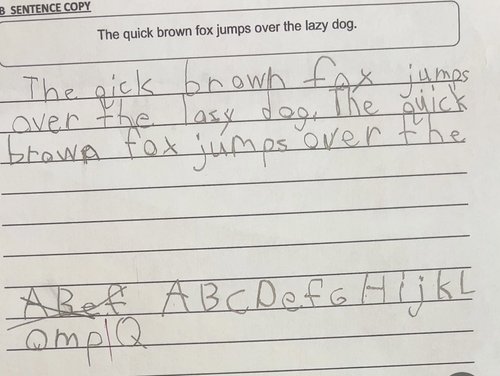 B SENTENCE COPY
The quick brown fox jumps over the lazy dog.
The qick brown fox jumps
over the lasy dog. The quick
brown fox jumps over the
ABef ABCDefGHijkL
Omp|Q